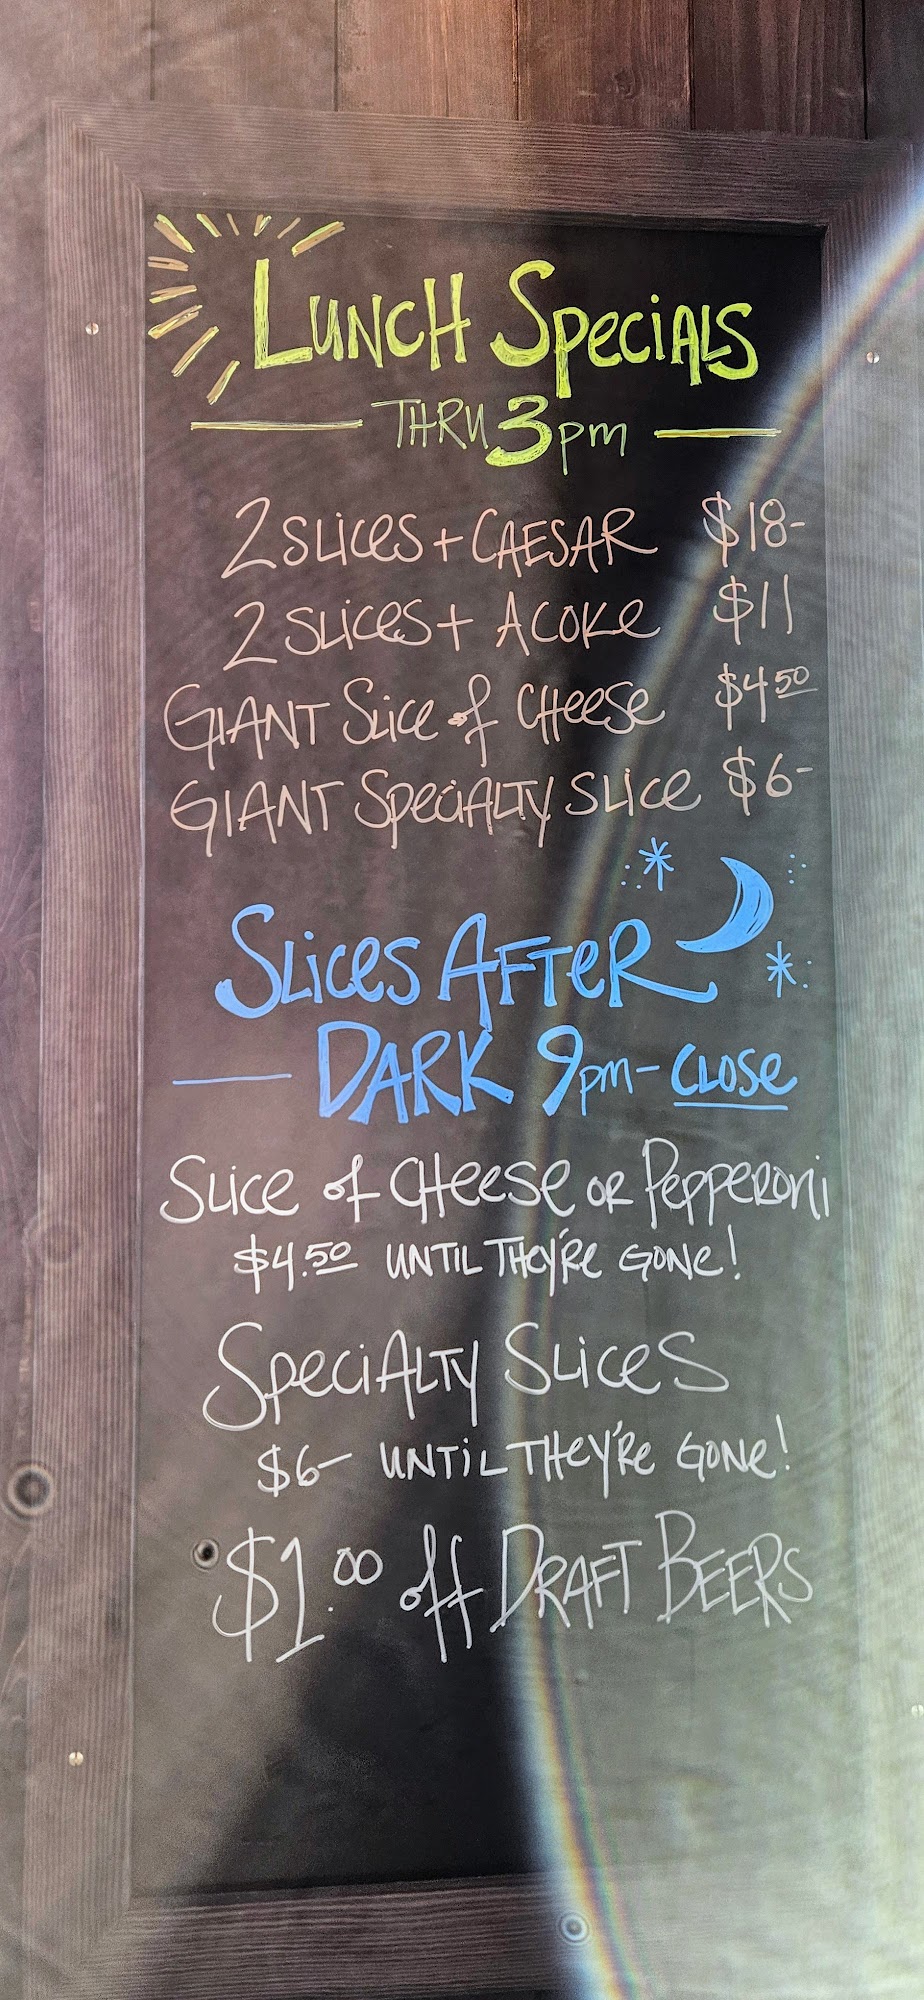 LUNCH SPECIALS
THRU 3pm
2 SLICES + CAESAR $18-
2 SLICES + A COKE $11
GIANT SLICE of CHEESE $4 50
GIANT SPECIALTY SLICE $6-
SLICES AFTER
DARK 9pm-CLOSE
SLICE of CHEESE OR PEPPERONI
$4.50 UNTIL THEY'RE GONE!
SPECIALTY SLICES
$6- UNTIL THEY'RE GONE!
$1.00 off DRAFT BEERS